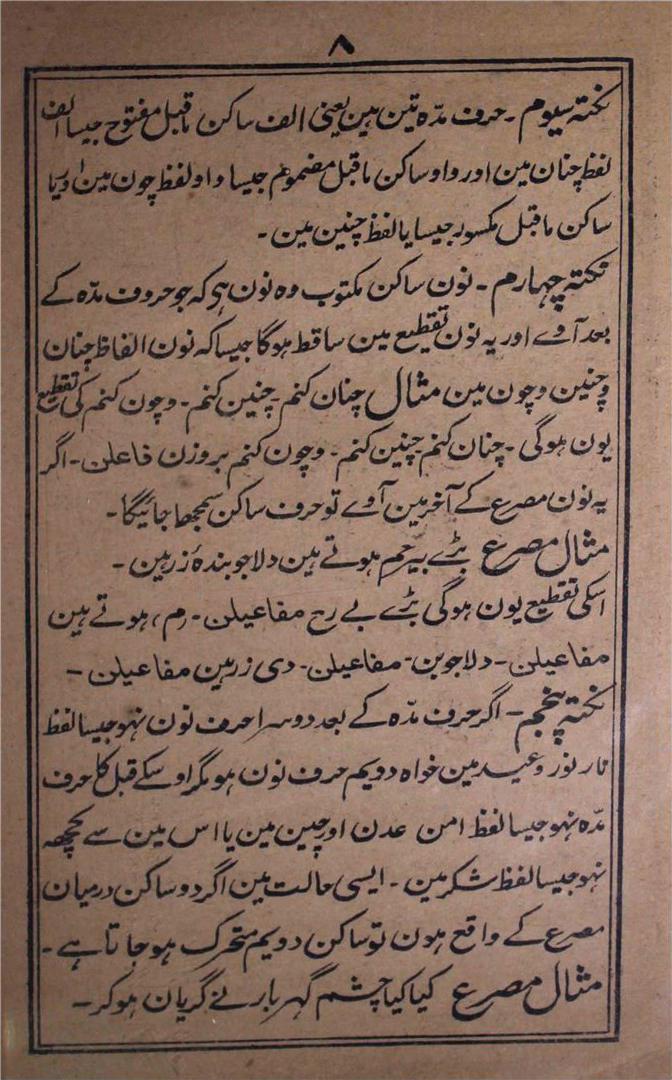 ۸
نکتہ سیوم ۔ حرف مدّہ تین ہین یعنی الف ساکن ماقبل مفتوح جیسا الف
لفظ چنان مین اور واو ساکن ماقبل مضموم جیسا واو لفظ چون مین اور یا
ساکن ماقبل مکسور جیسا یا لفظ چنین مین ۔
نکتہ چہارم ۔ نون ساکن مکتوب وہ نون ہی کہ جو حروف مدّہ کے
بعد آوے اور یہ نون تقطیع مین ساقط ہوگا جیسا کہ نون الفاظ چنان
و چنین و چون مین مثال چنان کنم ۔ چنین کنم ۔ و چون کنم کی تقطیع
یون ہوگی ۔ چنان کنم چنین کنم ۔ و چون کنم بروزن فاعلن ۔ اگر
یہ نون مصرع کے آخر مین آوے تو حرف ساکن سمجھا جائیگا ۔
مثال مصرع بڑے بیرحم ہوتے ہین دلا جو بندۂ زر ہین ۔
اسکی تقطیع یون ہوگی بڑے بے رح مفاعیلن ۔ رم، ہوتے ہین
مفاعیلن ۔ دلا جو بن ۔ مفاعیلن ۔ دی زر ہین مفاعیلن ۔
نکتہ پنجم ۔ اگر حرف مدّہ کے بعد دوسرا حرف نون نہو جیسا لفظ
نار نور و عید مین خواہ دویم حرف نون ہو مگر اوسکے قبل کا حرف
مدّہ نہو جیسا لفظ امن عدن اور چین مین یا اس مین سے کچھہ
نہو جیسا لفظ شکر مین ۔ ایسی حالت مین اگر دو ساکن درمیان
مصرع کے واقع ہون تو ساکن دویم متحرک ہو جاتا ہے ۔
مثال مصرع کیا کیا چشم گہر بار نے گریان ہو کر ۔